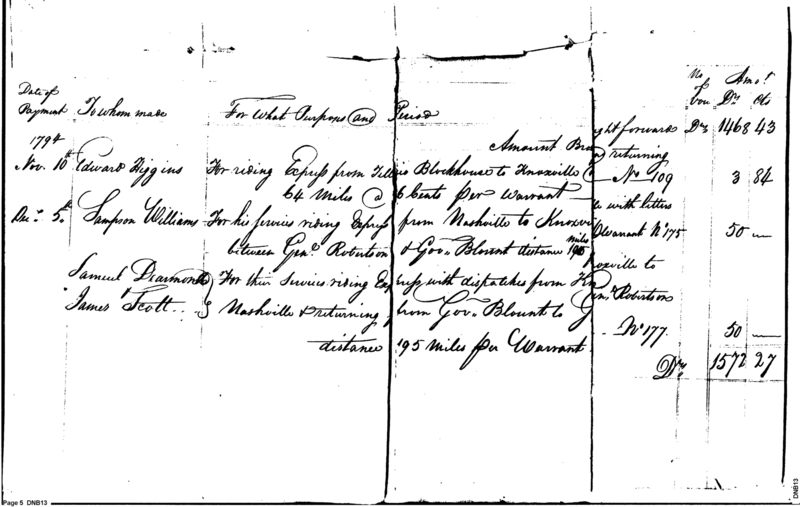 Date of Payment To whom made For What Purpose and Period No. Vou Amot. Drs Cts
Amount Brought forward Drs 1468 43
1794
Nov. 10th Edward Higgins For riding Express from Tellico Blockhouse to Knoxville and returning
64 Miles @ 6 Cents per Warrant No 109 3 84
Decr. 5th Sampson Williams For his Services riding Express from Nashville to Knoxville with letters
between Genl. Robertson & Gov. Blount distance 195 miles Warrant No 175 50 —
Samuel Dearmond } For their Services riding Express with dispatches from Knoxville to
James Scott } Nashville & returning from Gov. Blount to Genl. Robertson
distance 195 Miles per Warrant No 177. 50 —
Drs 1572 27
Page 5 DNB13
DNB13